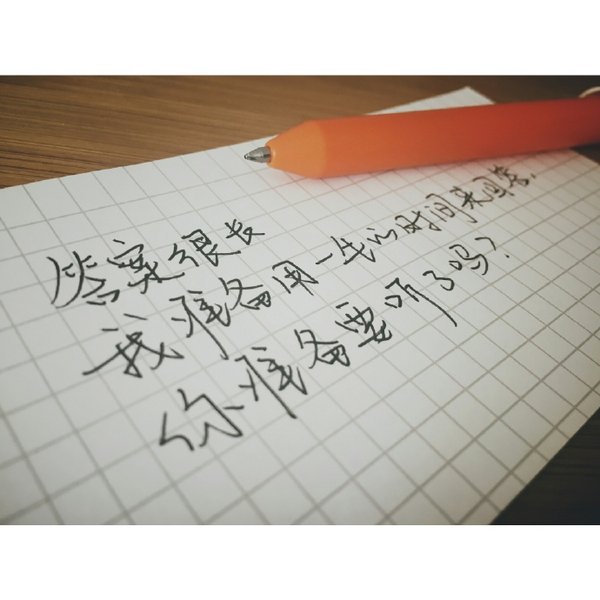 答案很长
我准备用一生的时间来回答.
你准备要听了吗?